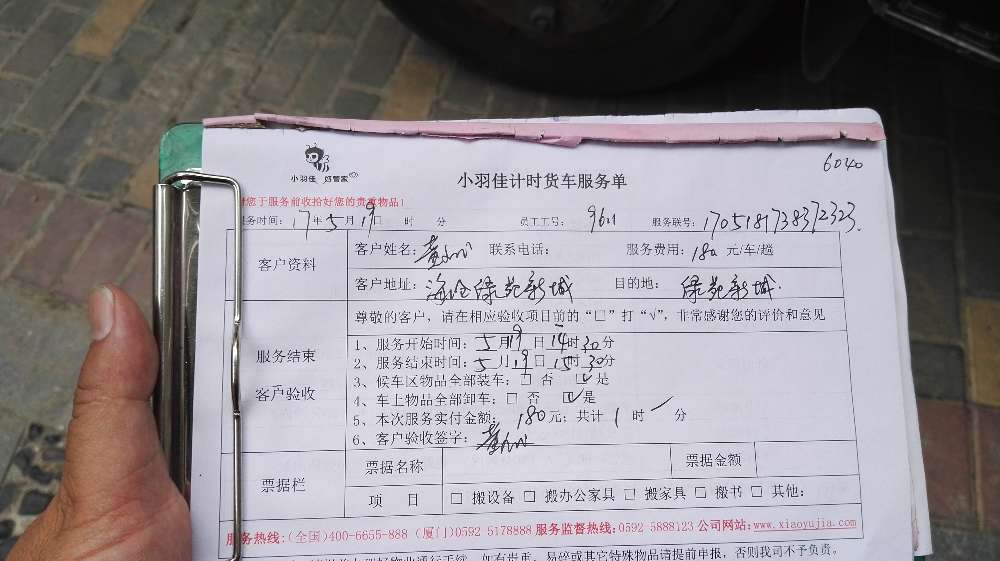 6040
小羽佳 好管家
小羽佳计时货车服务单
您于服务前收拾好您的贵重物品!
服务时间: 17年5月19日 时 分 员工工号: 服务联号:
客户资料
客户姓名: 联系电话: 服务费用: 180 元/车/趟
客户地址: 海沧绿苑新城 目的地: 绿苑新城.
服务结束
客户验收
尊敬的客户,请在相应验收项目前的“□”打“√”,非常感谢您的评价和意见
1、服务开始时间: 5月19日14时30分
2、服务结束时间: 5月19日15时30分
3、候车区物品全部装车: □ 否 ☑是
4、车上物品全部卸车: □ 否 ☑是
5、本次服务实付金额: 180元; 共计 1 时 一 分
6、客户验收签字:
票据栏
票据名称 票据金额
项 目 □ 搬设备 □ 搬办公家具 □ 搬家具 □ 搬书 □ 其他:
服务热线:(全国)400-6655-888 (厦门)0592 5178888 服务监督热线:0592-5888123 公司网站:www.xiaoyujia.com
易碎或其它特殊物品请提前申报,否则我司不予负责。